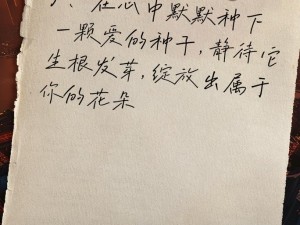 在心中默默种下
一颗爱的种子，静待它
生根发芽，绽放出属于
你的花朵